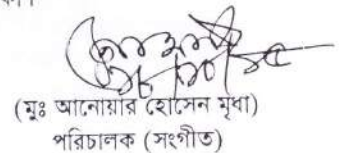 (মুঃ আনোয়ার হোসেন মৃধা)
পরিচালক (সংগীত)